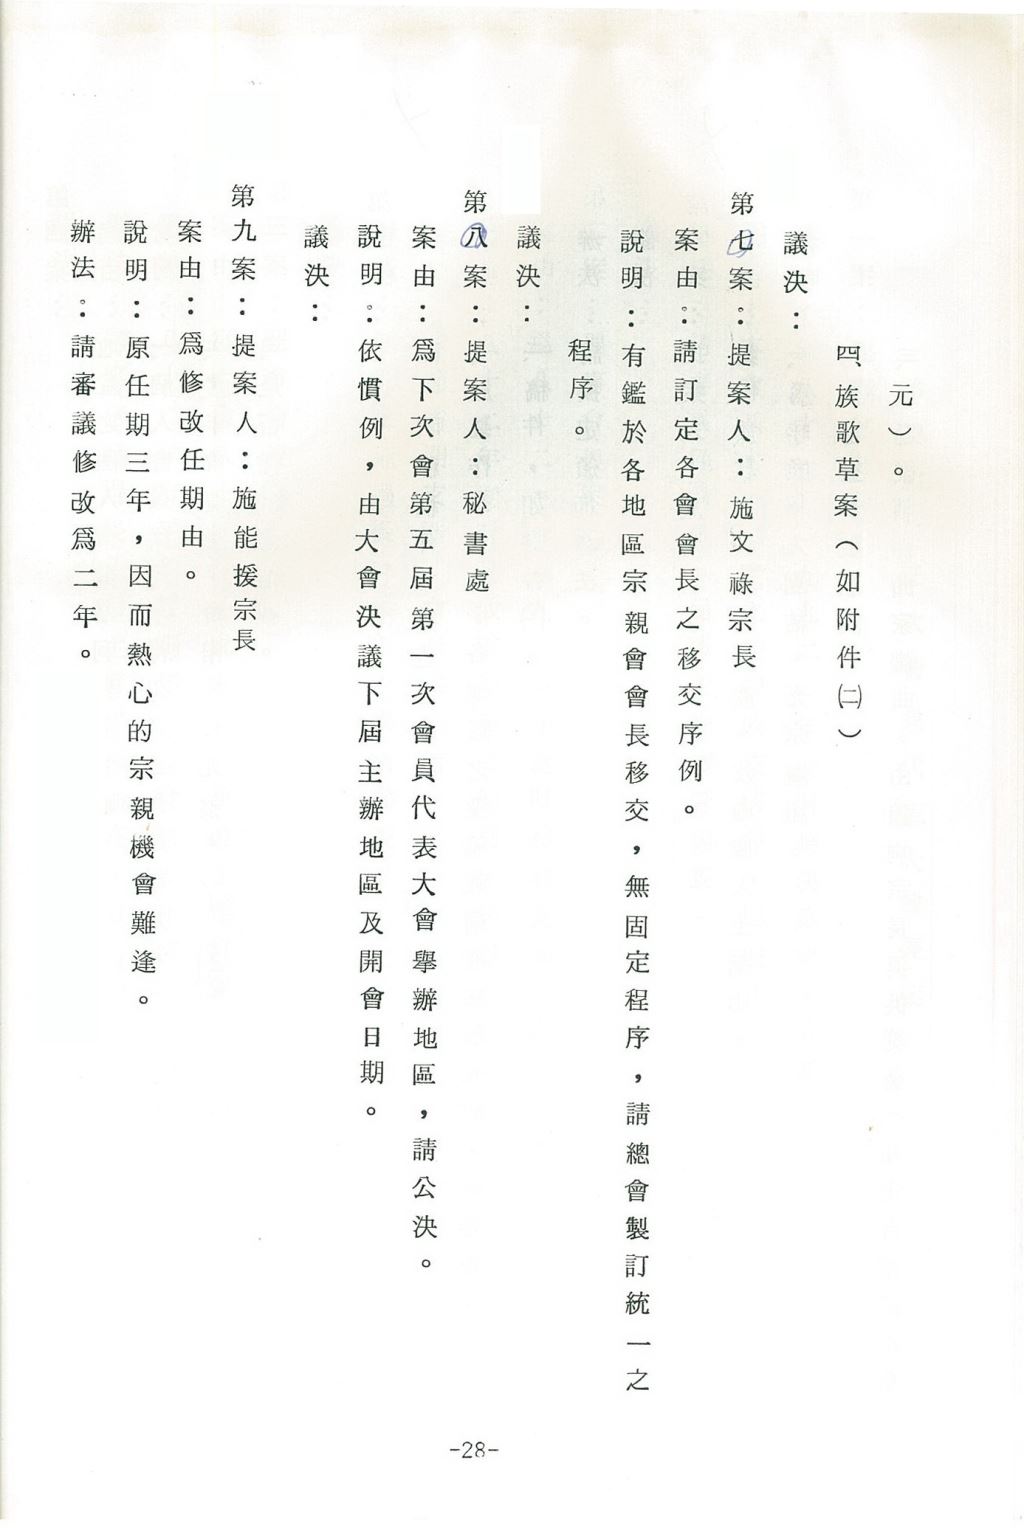 元）。
四、族歌草案（如附件㈡）
議決：
第七案：提案人：施文祿宗長
案由：請訂定各會會長之移交序例。
說明：有鑑於各地區宗親會會長移交，無固定程序，請總會製訂統一之
程序。
議決：
第八案：提案人：秘書處
案由：爲下次會第五屆第一次會員代表大會舉辦地區，請公決。
說明：依慣例，由大會決議下屆主辦地區及開會日期。
議決：
第九案：提案人：施能援宗長
案由：爲修改任期由。
說明：原任期三年，因而熱心的宗親機會難逢。
辦法：請審議修改爲二年。
-28-